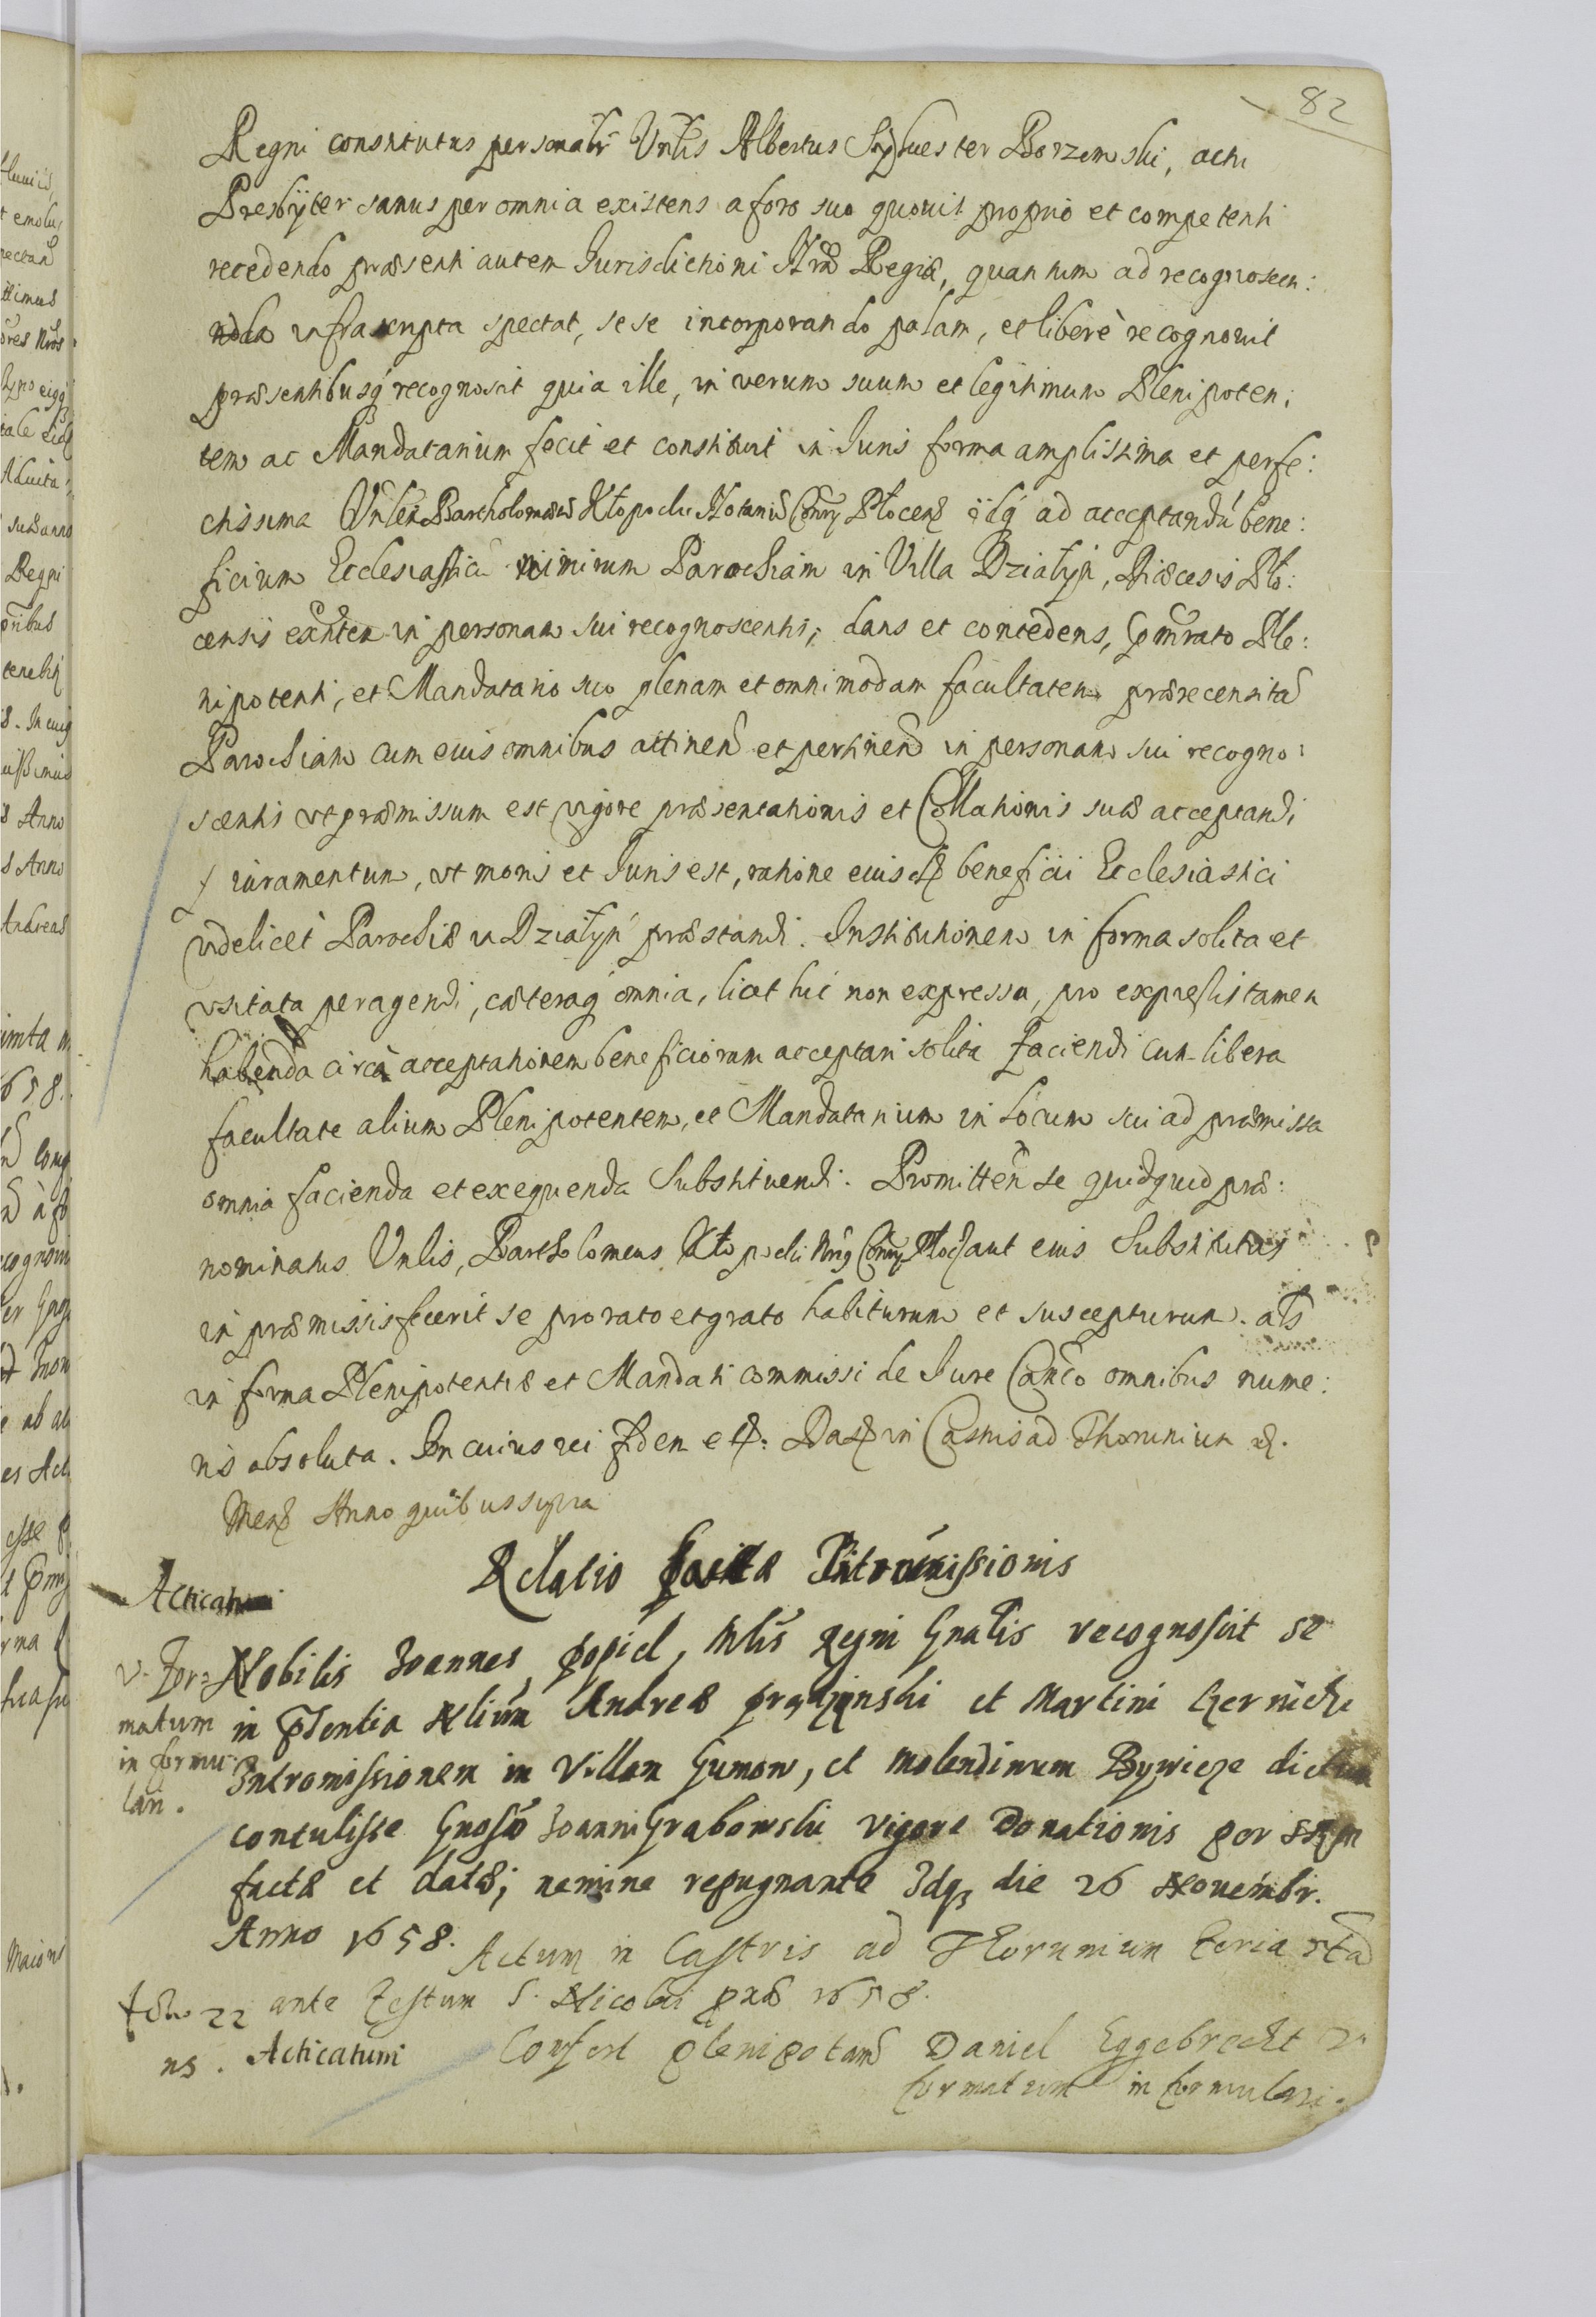 82
Regni constitutus personalr Vnlis Albertus Syluester Borzewski, actu
Presbyter sanus per omnia existens a foro suo quouis proprio et competenti
recedendo præsenti autem Iurisdictioni Nræ Regiæ, quantum ad recognoscen:
da infrascripta spectat, sese incorporando palam, et liberè recognouit
præsentibusq recognoscit quia ille, in verum suum et legitimum Plenipoten:
tem ac Mandatarium fecit et constituit in Iuris forma amplissima et perfe:
ctissima Vnlem Bartholomæū Kłopocki Notariū Plocen ad acceptandū bene:
ficium Ecclesiasticū nimirum Parochiam in Villa Działyń, Diœcesis Plo:
censis exntem in personam sui recognoscentis; dans et concedens, Ple:
nipotenti, et Mandatario suo plenam et omnimodam facultatem prærecensitā
Parochiam cum euis omnibus attinen et pertinen in personam sui recogno:
scentis vt præmissum est vigore præsentationis et Collationis suæ acceptandi
iuramentum, vt moris et Iuris est, ratione euisd beneficii Ecclesiastici
videlicet Parochiæ in Działyń præstandi. Institutionem in forma solita et
vsitata peragendi, cæteraq omnia, licet hic non expressa, pro expressis tamen
habenda circà acceptationem beneficiorum acceptari solita faciendi cum libera
facultate alium Plenipotentem, et Mandatarium in locum sui ad præmissa
omnia facienda et exequenda Substituendi. Promitten se quidquid præ:
nominatus Vnlis, Bartholomeus Kłopocki aut euis Substitutus
in præmissis fecerit se pro rato et grato habiturum et suscepturum. als
in forma Plenipotentiæ et Mandati commissi de Iure Canco omnibus nume:
ris absoluta. In cuius rei fidem etc: Dat in Castris ad Thorunium
Mens Anno quibus supra
Relatio factæ Intromissionis
Acticatum
Nobilis Joannes Popiel, Mlis Regni Gnalis recognoscit se
v. For:
in ptentia Nlium Andreæ et Martini Czernicki
matum
Intromissionem in Villam Gumow, et molendinum dictum
in formu:
lari.
contulisse Gnoso Joanni Grabowski vigore Donationis per
factæ et datæ; nemine repugnante Idq die 26 Nouembr.
Anno 1658.
Actum in Castris ad Thorunium feria
ante festum S. Nicolai 1658.
Acticatum Confert plenipotam Daniel Eggebrecht v.
formatum in formulari.